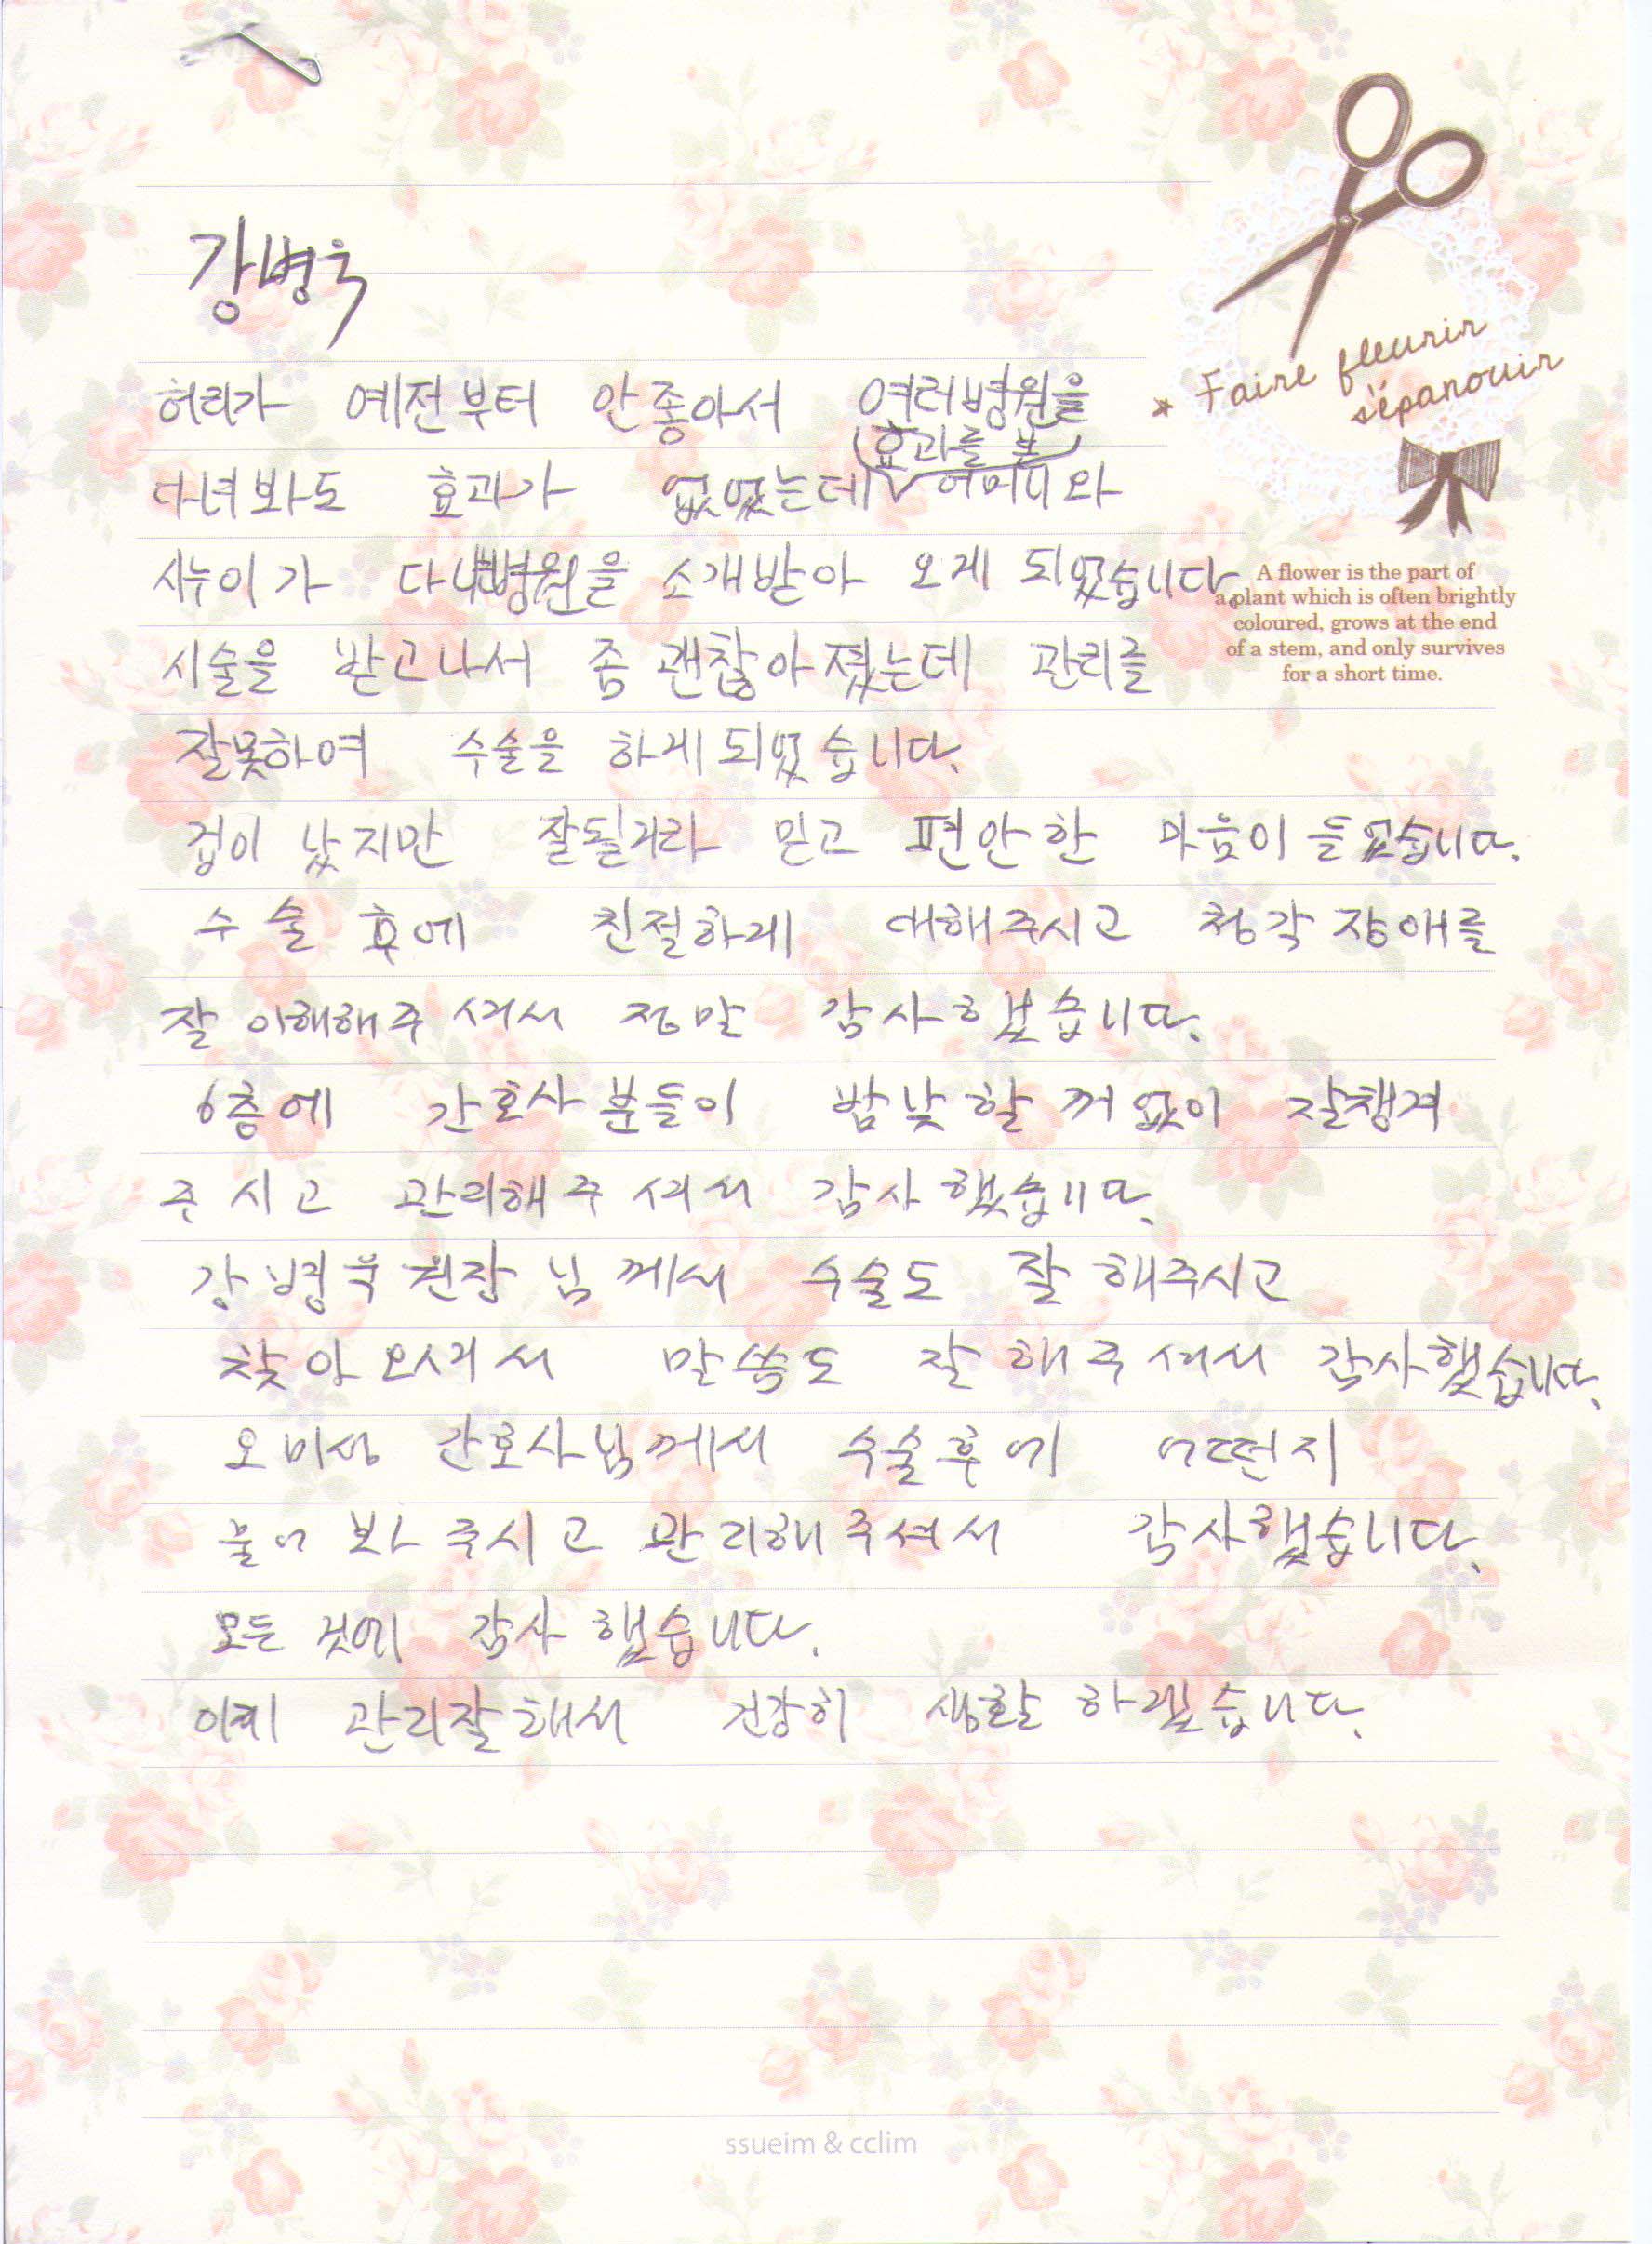 강병욱
허리가 예전부터 안좋아서 여러병원을
다녀봐도 효과가 없었는데 효과를 본 어머니와
시누이가 다니는병원을 소개받아 오게 되었습니다.
시술을 받고나서 좀 괜찮아졌는데 관리를
잘못하여 수술을 하게되었습니다.
겁이 났지만 잘될거라 믿고 편안한 마음이 들었습니다.
수술 후에 친절하게 대해주시고 청각장애를
잘 이해해주셔서 정말 감사했습니다.
6층에 간호사분들이 밤낮할꺼없이 잘챙겨
주시고 관리해주셔서 감사했습니다.
강병욱원장님께서 수술도 잘 해주시고
찾아오셔서 말씀도 잘해주셔서 감사했습니다.
간호사님께서 수술후에 어떤지
물어봐주시고 관리해주셔서 감사했습니다.
모든 것에 감사했습니다.
관리잘해서 건강히 생활하겠습니다.
Faire fleurir
s'épanouir
A flower is the part of
a plant which is often brightly
coloured, grows at the end
of a stem, and only survives
for a short time.
ssueim & cclim